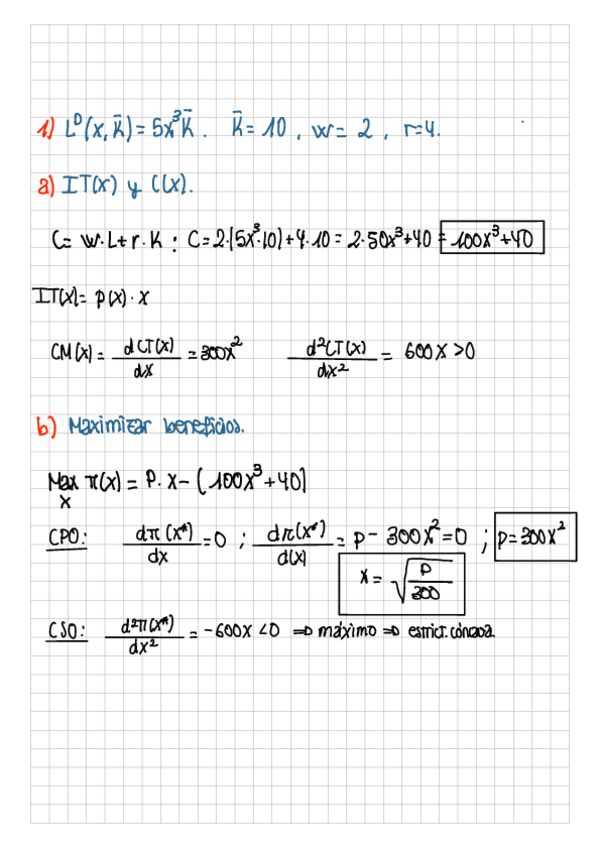 1) L^D(x, K̄) = 5x³K̄. K̄ = 10, w = 2, r=4.
a) IT(x) y C(x).
C= w·L+r·K : C=2·(5x³·10)+4·10= 2·50x³+40 = 100x³+40
IT(x)= p(x)·x
CM(x) = dCT(x)/dx = 300x² d²CT(x)/dx² = 600x >0
b) Maximizar beneficios.
Max π(x) = P·x - (100x³+40)
x
CPO: dπ(x*)/dx = 0 ; dπ(x*)/d(x) = p - 300x² = 0 ; p=300x²
x = √(p/300)
CSO: d²π(x*)/dx² = -600x <0 ⇒ máximo ⇒ estrict. cóncava.